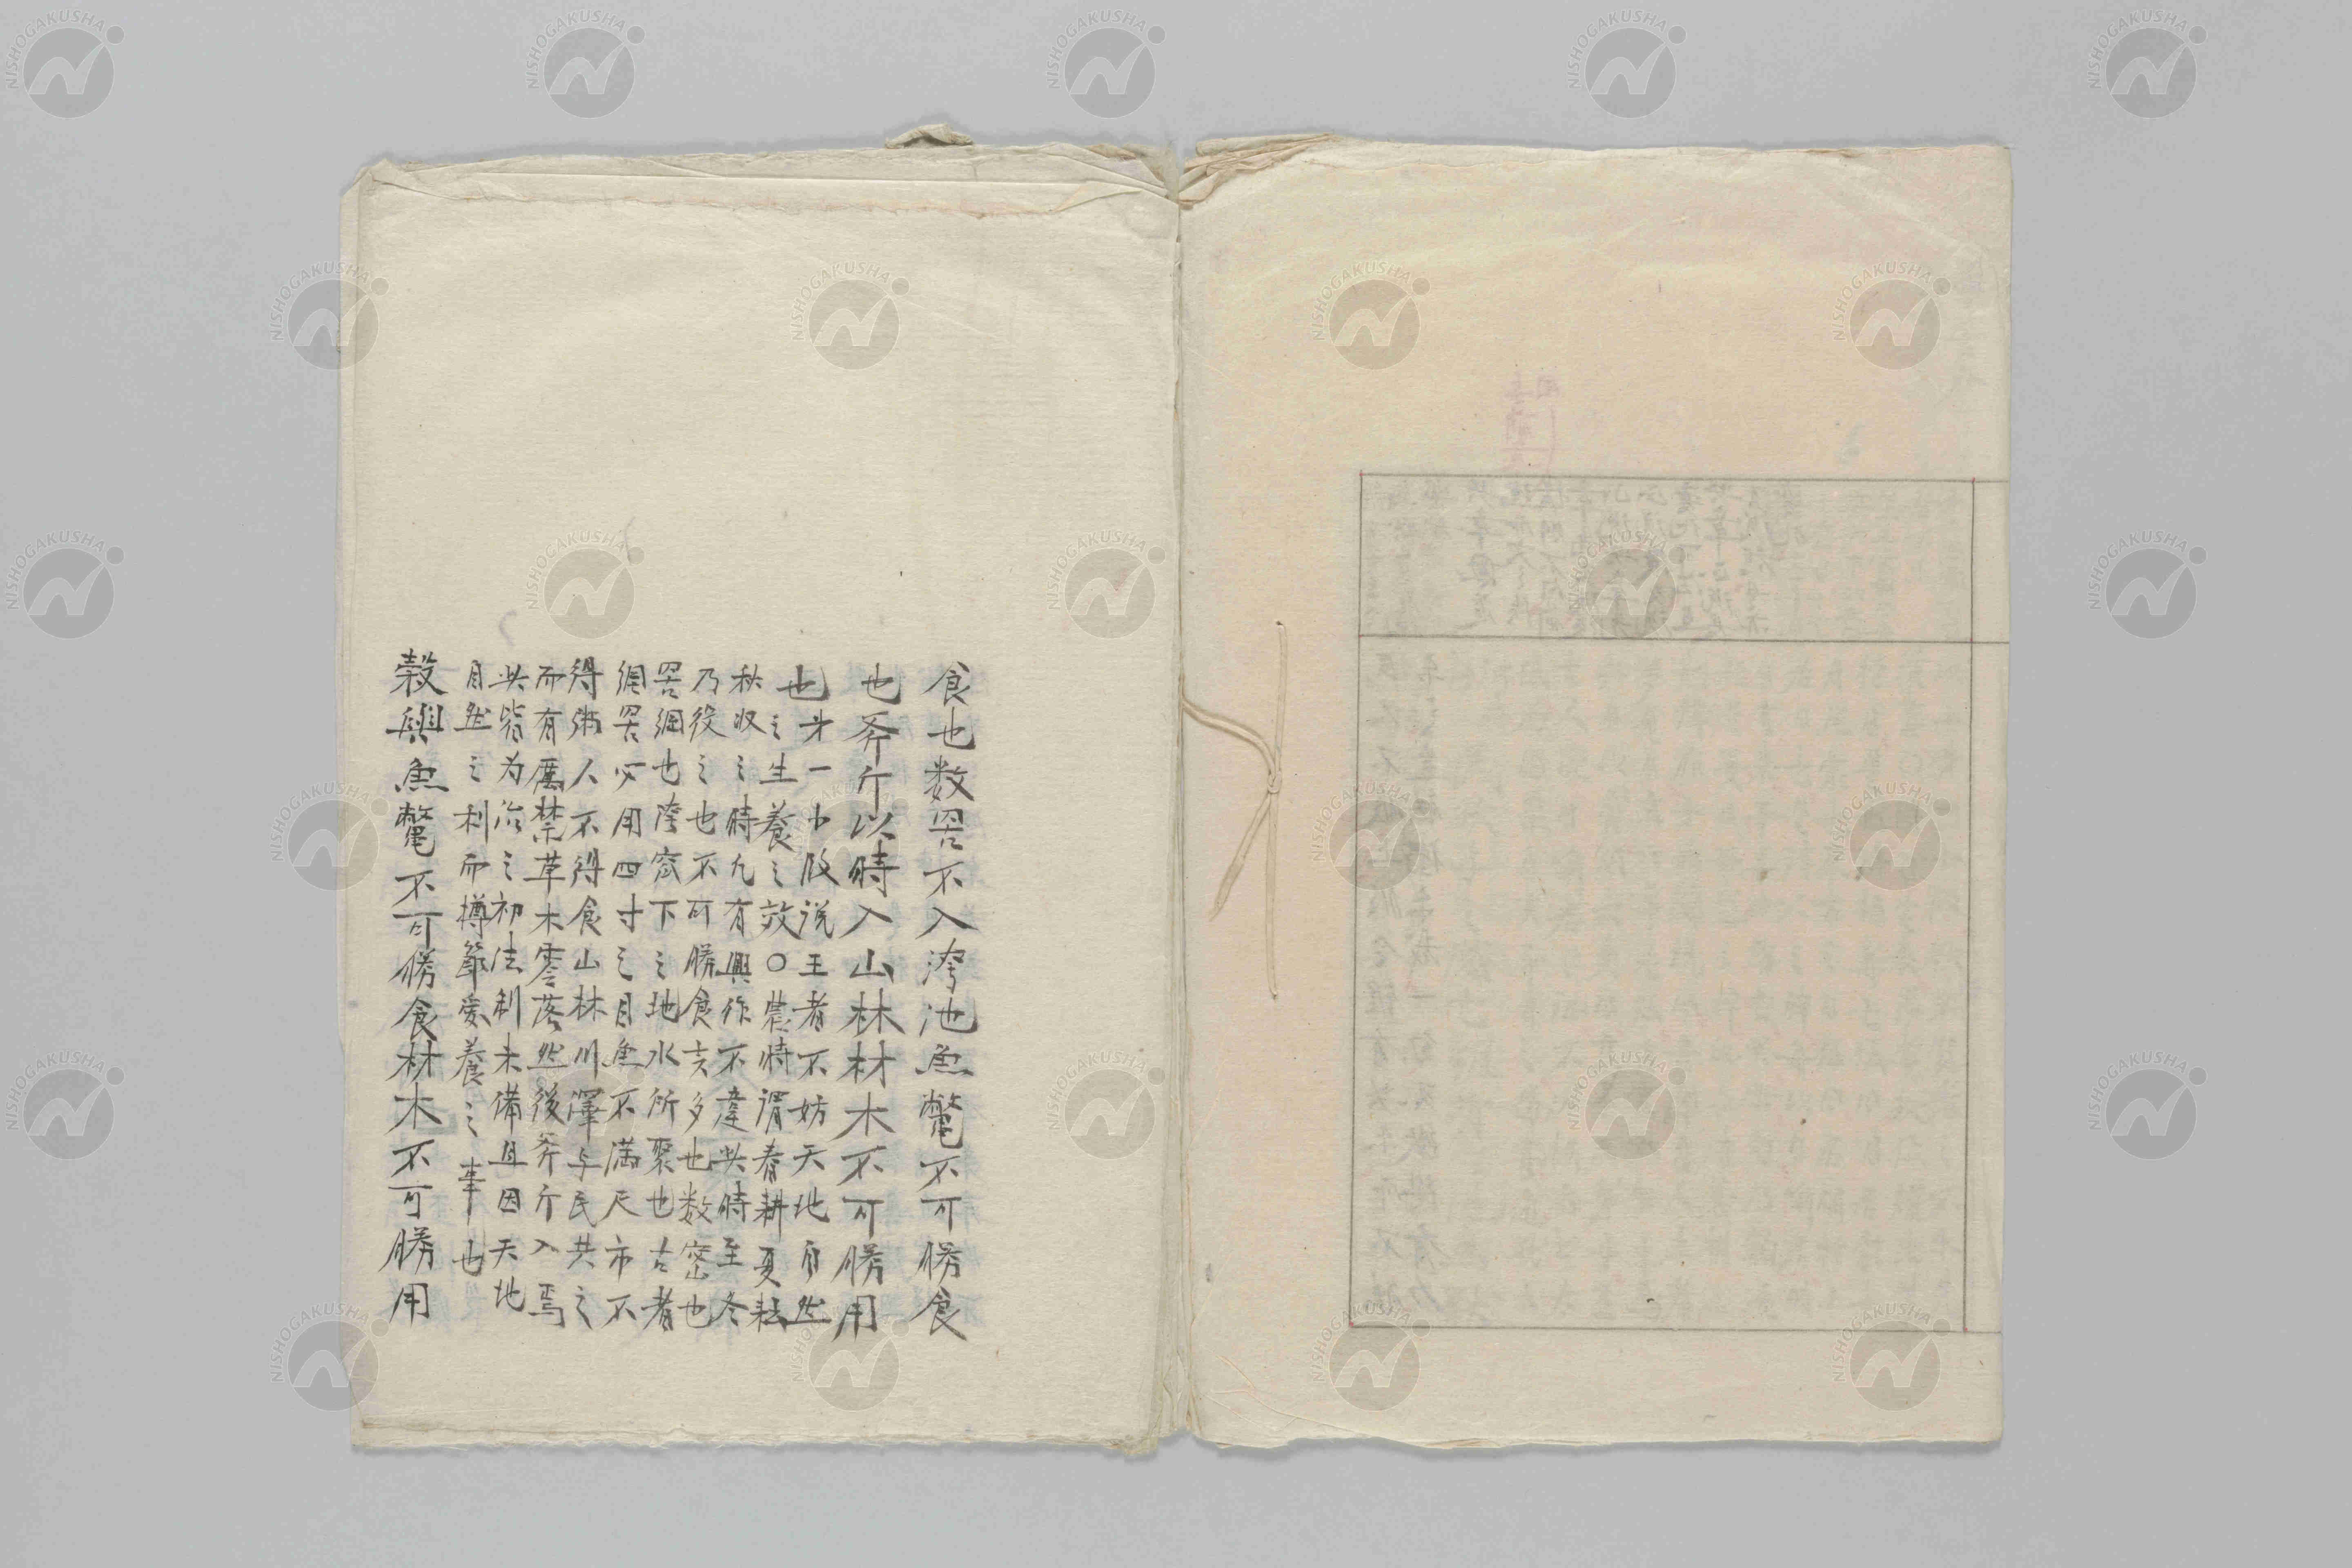 食也数罟不入洿池魚鼈不可勝食
也斧斤以時入山林材木不可勝用
也才一小段説王者不妨天地自然
之生養之效○農時謂春耕夏耘
秋收之時凡有興作不違其時至冬
乃役之也不可勝食言多也数密也
罟網也洿窊下之地水所聚也古者
網罟必用四寸之目魚不満尺市不
得粥人不得食山林川澤与民共之
而有厲禁草木零落然後斧斤入焉
此皆为治之初法制未備且因天地
自然之利而撙節愛養之事也
穀與魚鼈不可勝食材木不可勝用
NISHOGAKUSHA